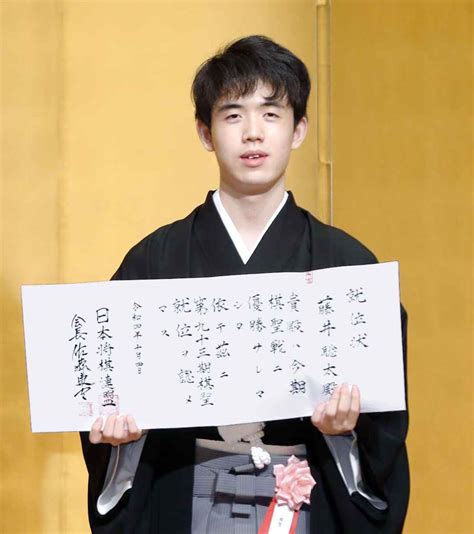 就位状
藤井聡太殿
貴殿ハ今期
棋聖戦ニ
優勝サレマ
シタ
依テ茲ニ
第九十三期棋聖
就位ヲ認メ
マス
令和四年 月 四日
日本将棋連盟
会長佐藤康光